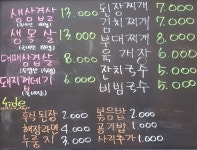 생삼겹살 13.000
생목살 13.000
대패삼겹살 8.000
돼지껍데기 6.000
된장찌개 7.000
김치찌개 7.000
부대찌개 7.000
육개장 6.000
잔치국수 5.000
비빔국수 5.000
Side
후식된장 2.000
해장라면 4.000
누룽지 3.000
볶음밥 2.000
공기밥 1.000
사리추가 1.000